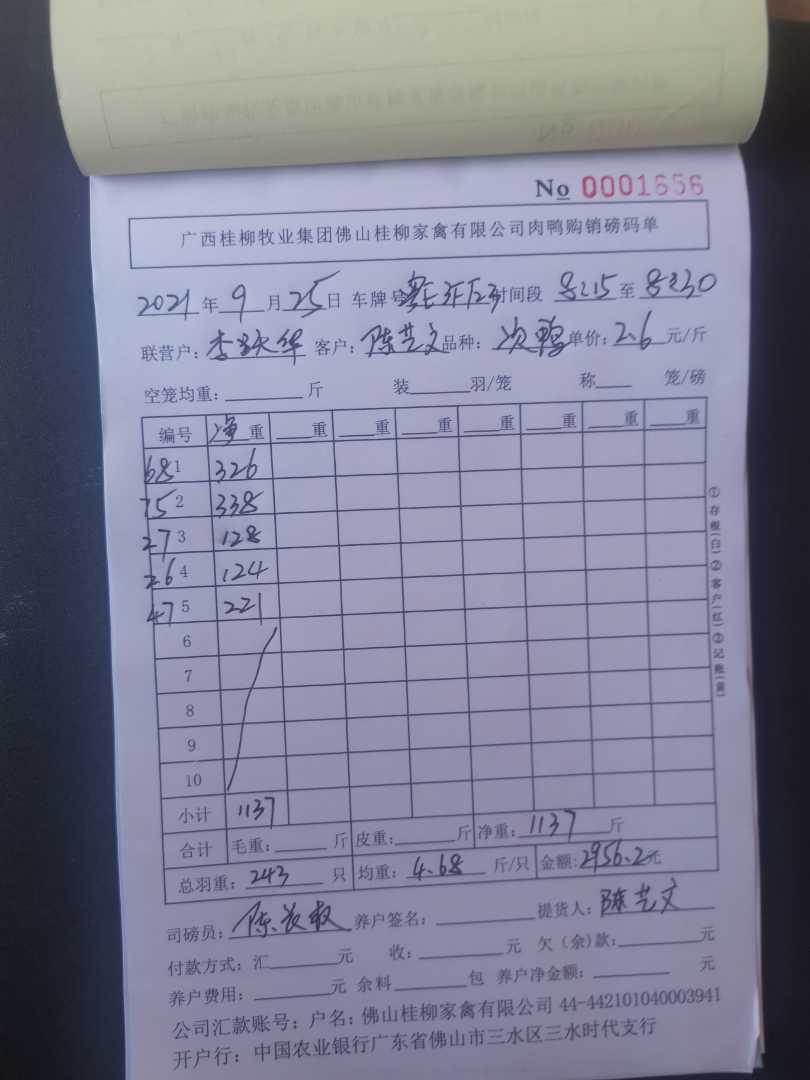 No 0001656
广西桂柳牧业集团佛山桂柳家禽有限公司肉鸭购销磅码单
2021年9月25日 车牌号 时间段 8:15至8:30
联营户: 李 华 客户: 陈艺文 品种: 次鸭 单价: 2.6元/斤
空笼均重:____斤 装____羽/笼 称____笼/磅
编号 净重 ____重 ____重 ____重 ____重 ____重 ____重 ____重
68 1 326
75 2 338
27 3 128
26 4 124
47 5 221
6
7
8
9
10
小计 1137
合计 毛重:____斤 皮重:____斤 净重: 1137斤
总羽重: 243只 均重: 4.68斤/只 金额: 2956.2元
司磅员: 陈 权 养户签名:____ 提货人: 陈艺文
付款方式: 汇____元 收:____元 欠(余)款:____元
养户费用:____元 余料____包 养户净金额:____元
公司汇款账号: 户名: 佛山桂柳家禽有限公司 44-442101040003941
开户行: 中国农业银行广东省佛山市三水区三水时代支行
①存根(白)②客户(红)③记账(黄)